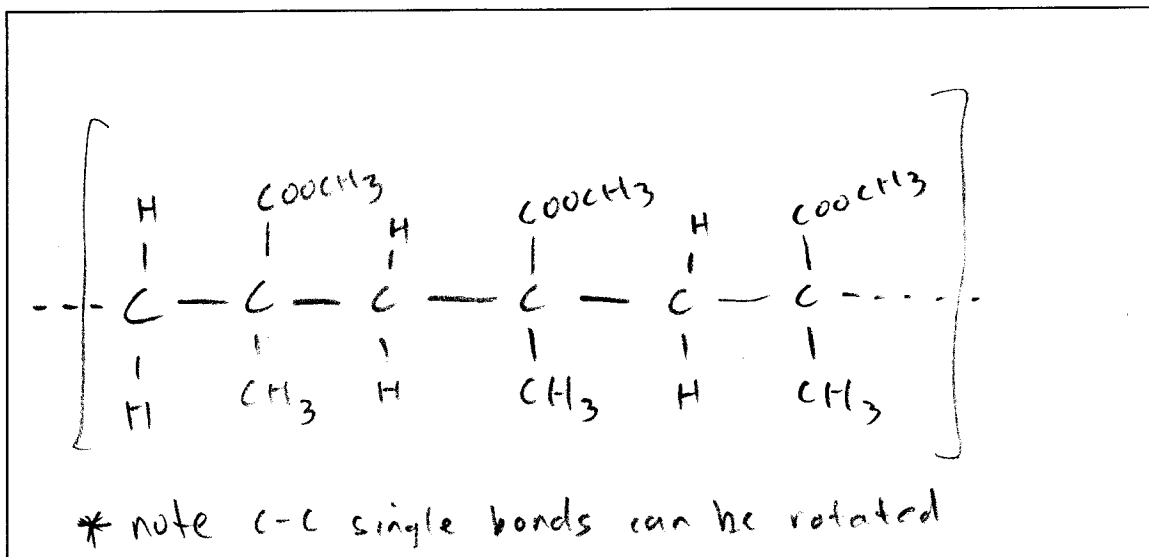 COOCH3 COOCH3 COOCH3
H H H
C — C — C — C — C — C
H CH3 H CH3 H CH3
* note C-C single bonds can be rotated